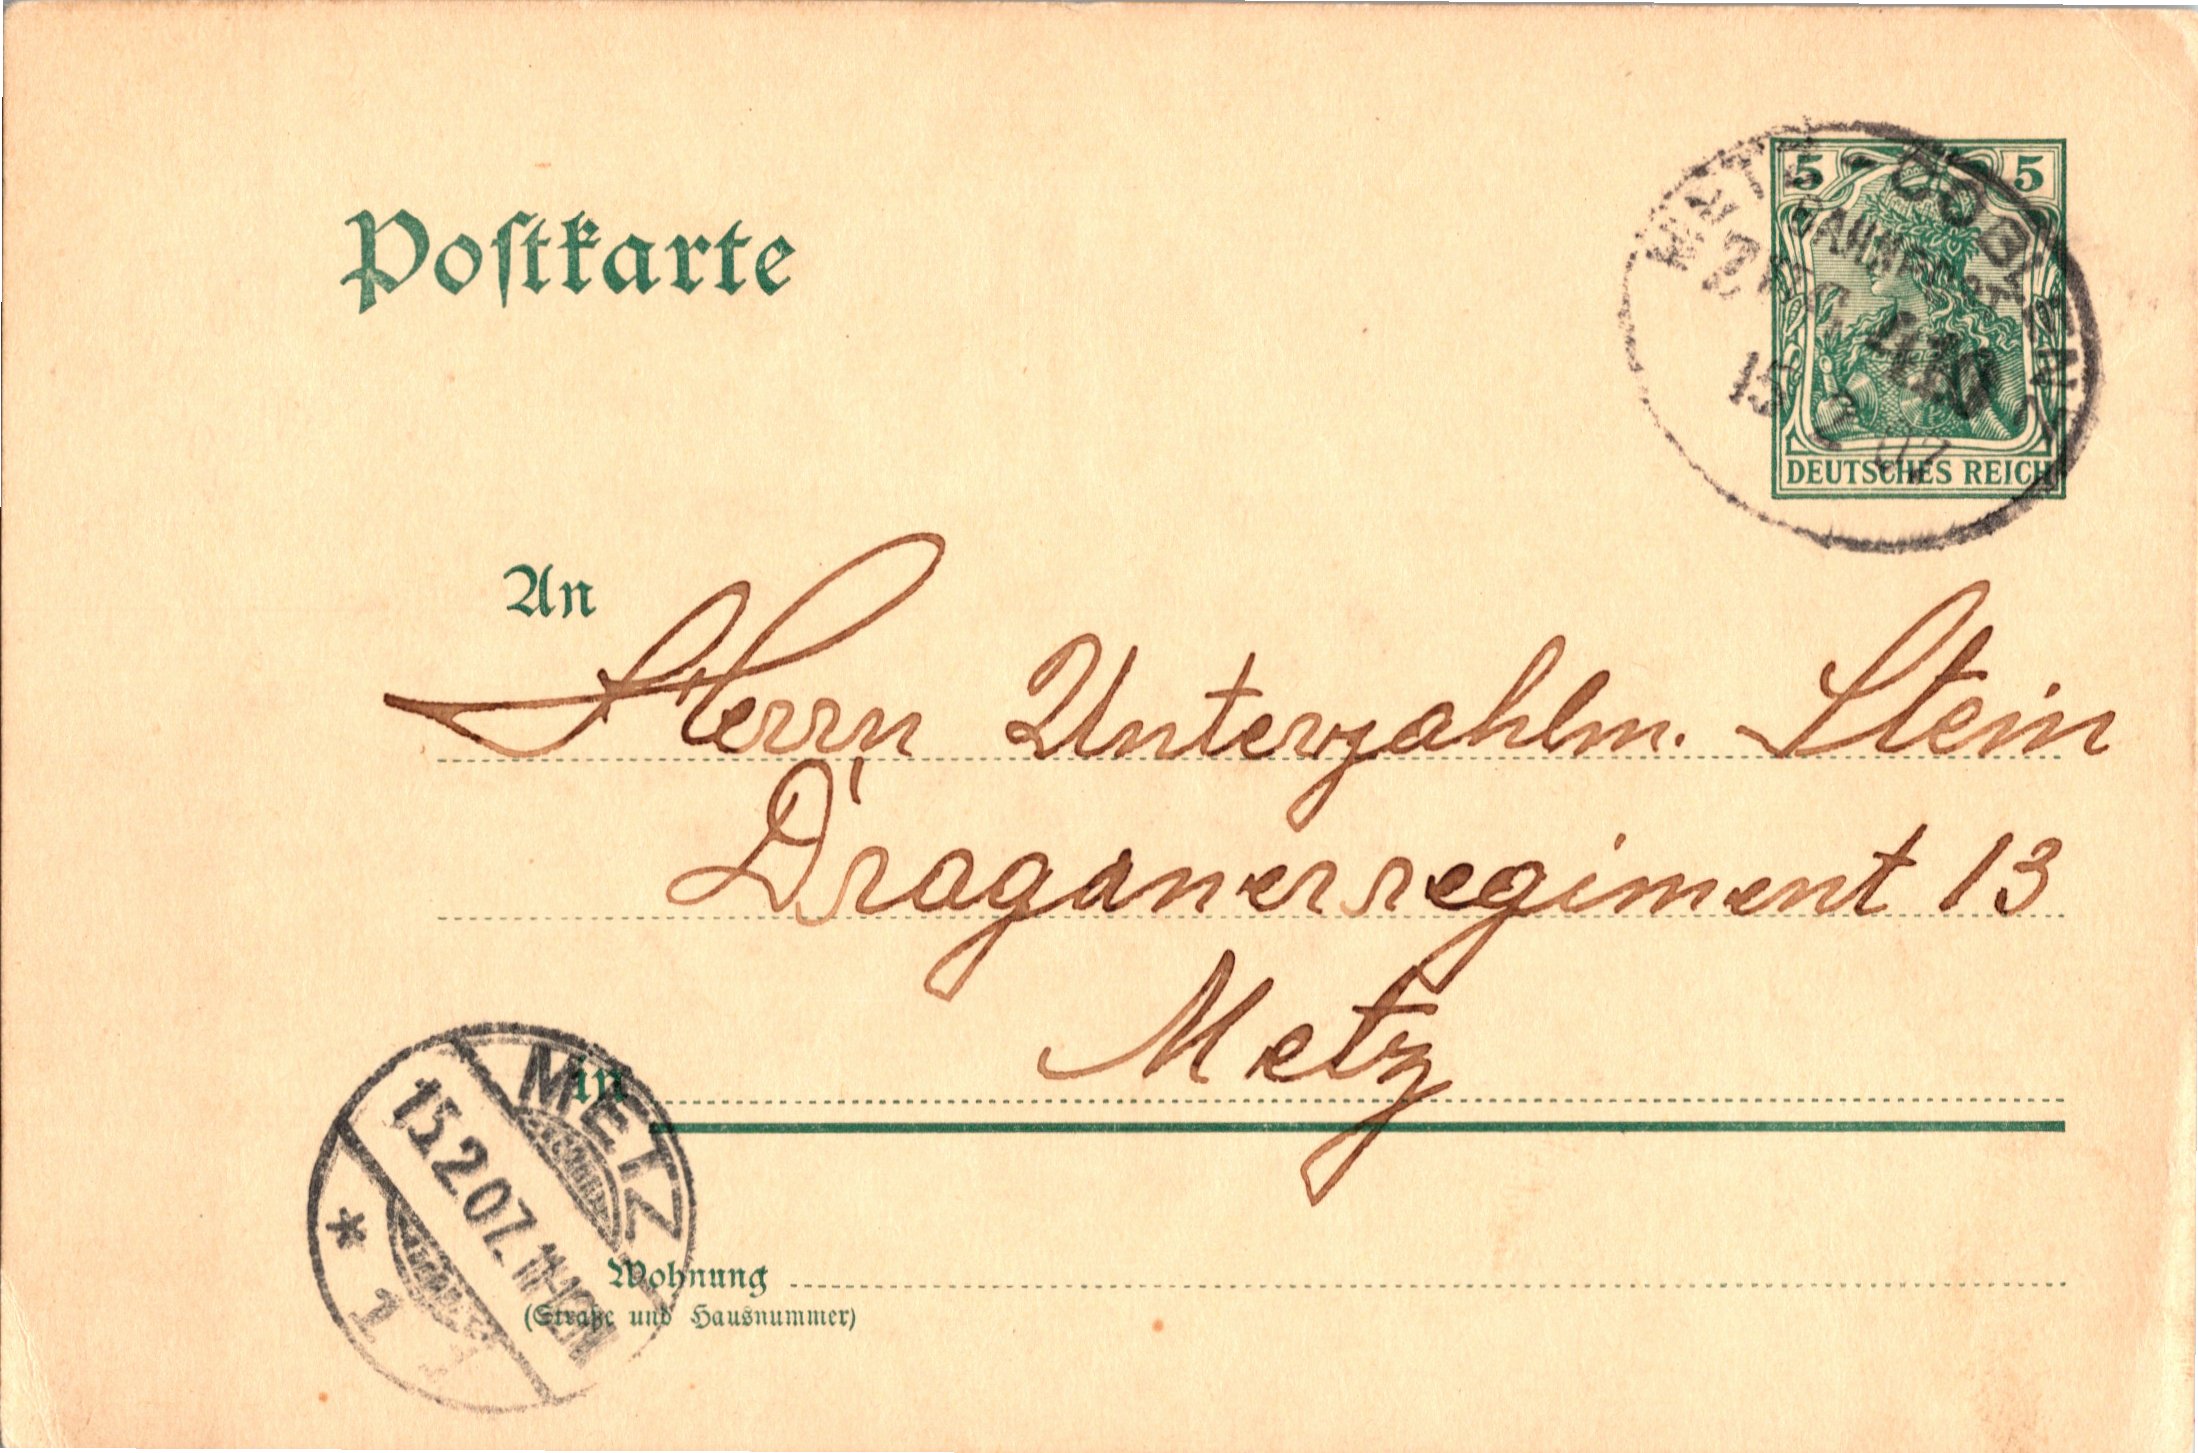 Postkarte
5 5
DEUTSCHES REICH
METZ - COBLENZ
BAHNPOST
ZUG
15 2 07
An
Herrn Unterzahlm. Stein
Dragonerregiment 13
in Metz
METZ
15.2.07. 11-12
* 1
Wohnung
(Straße und Hausnummer)